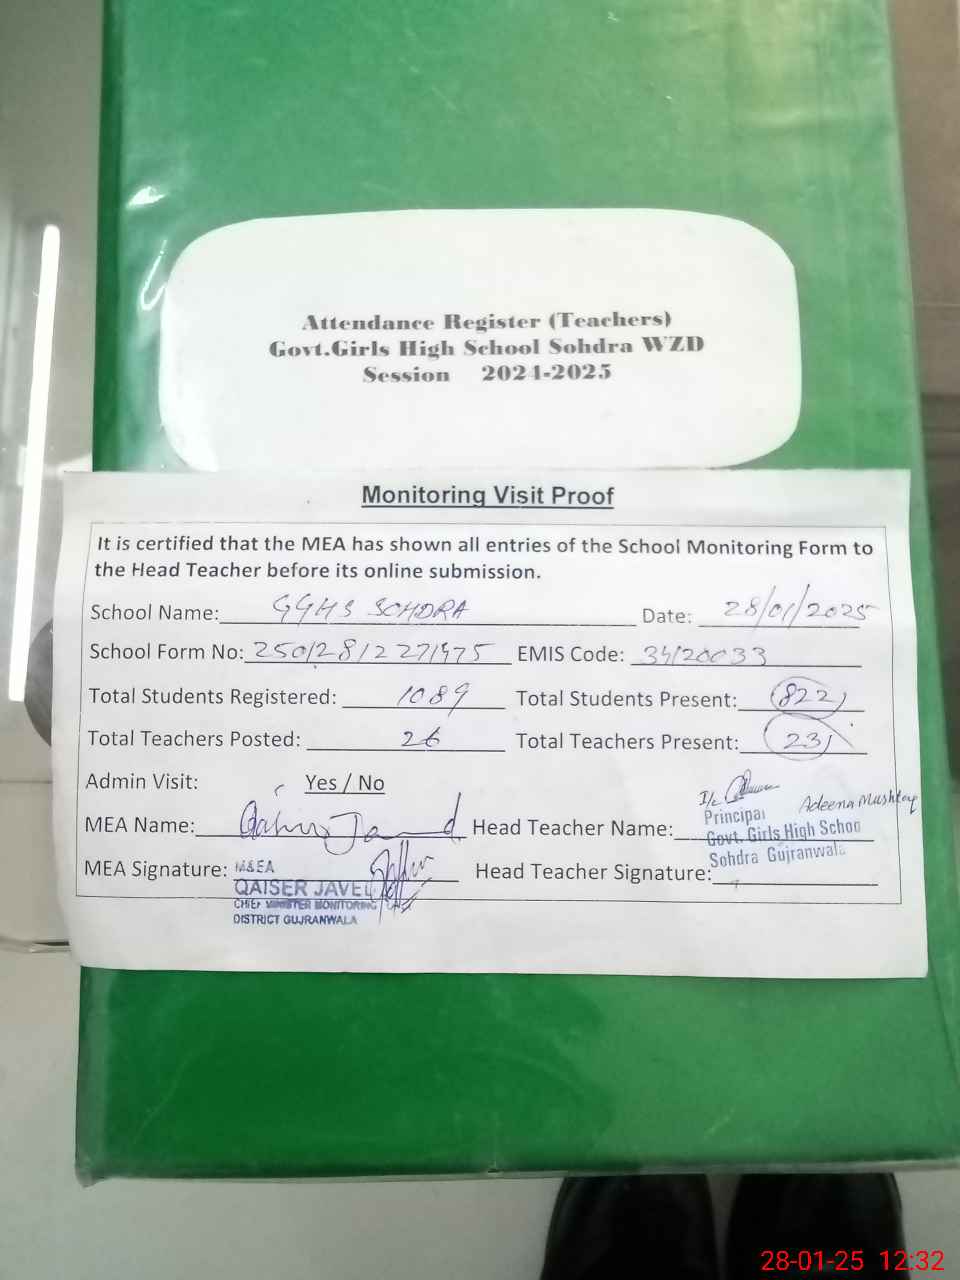 Attendance Register (Teachers)
Govt.Girls High School Sohdra WZD
Session 2024-2025
Monitoring Visit Proof
It is certified that the MEA has shown all entries of the School Monitoring Form to
the Head Teacher before its online submission.
School Name: GGHS SOHDRA Date: 28/01/2025
School Form No: EMIS Code: 34120033
Total Students Registered: 1089 Total Students Present: 822
Total Teachers Posted: 26 Total Teachers Present: 23
Admin Visit: Yes / No
I/c Adeena Mushtaq
MEA Name: Head Teacher Name:
Principal
Govt. Girls High School
Sohdra Gujranwala
MEA Signature: Head Teacher Signature:
M&EA
QAISER JAVED
CHIEF MINISTER MONITORING
DISTRICT GUJRANWALA
28-01-25 12:32